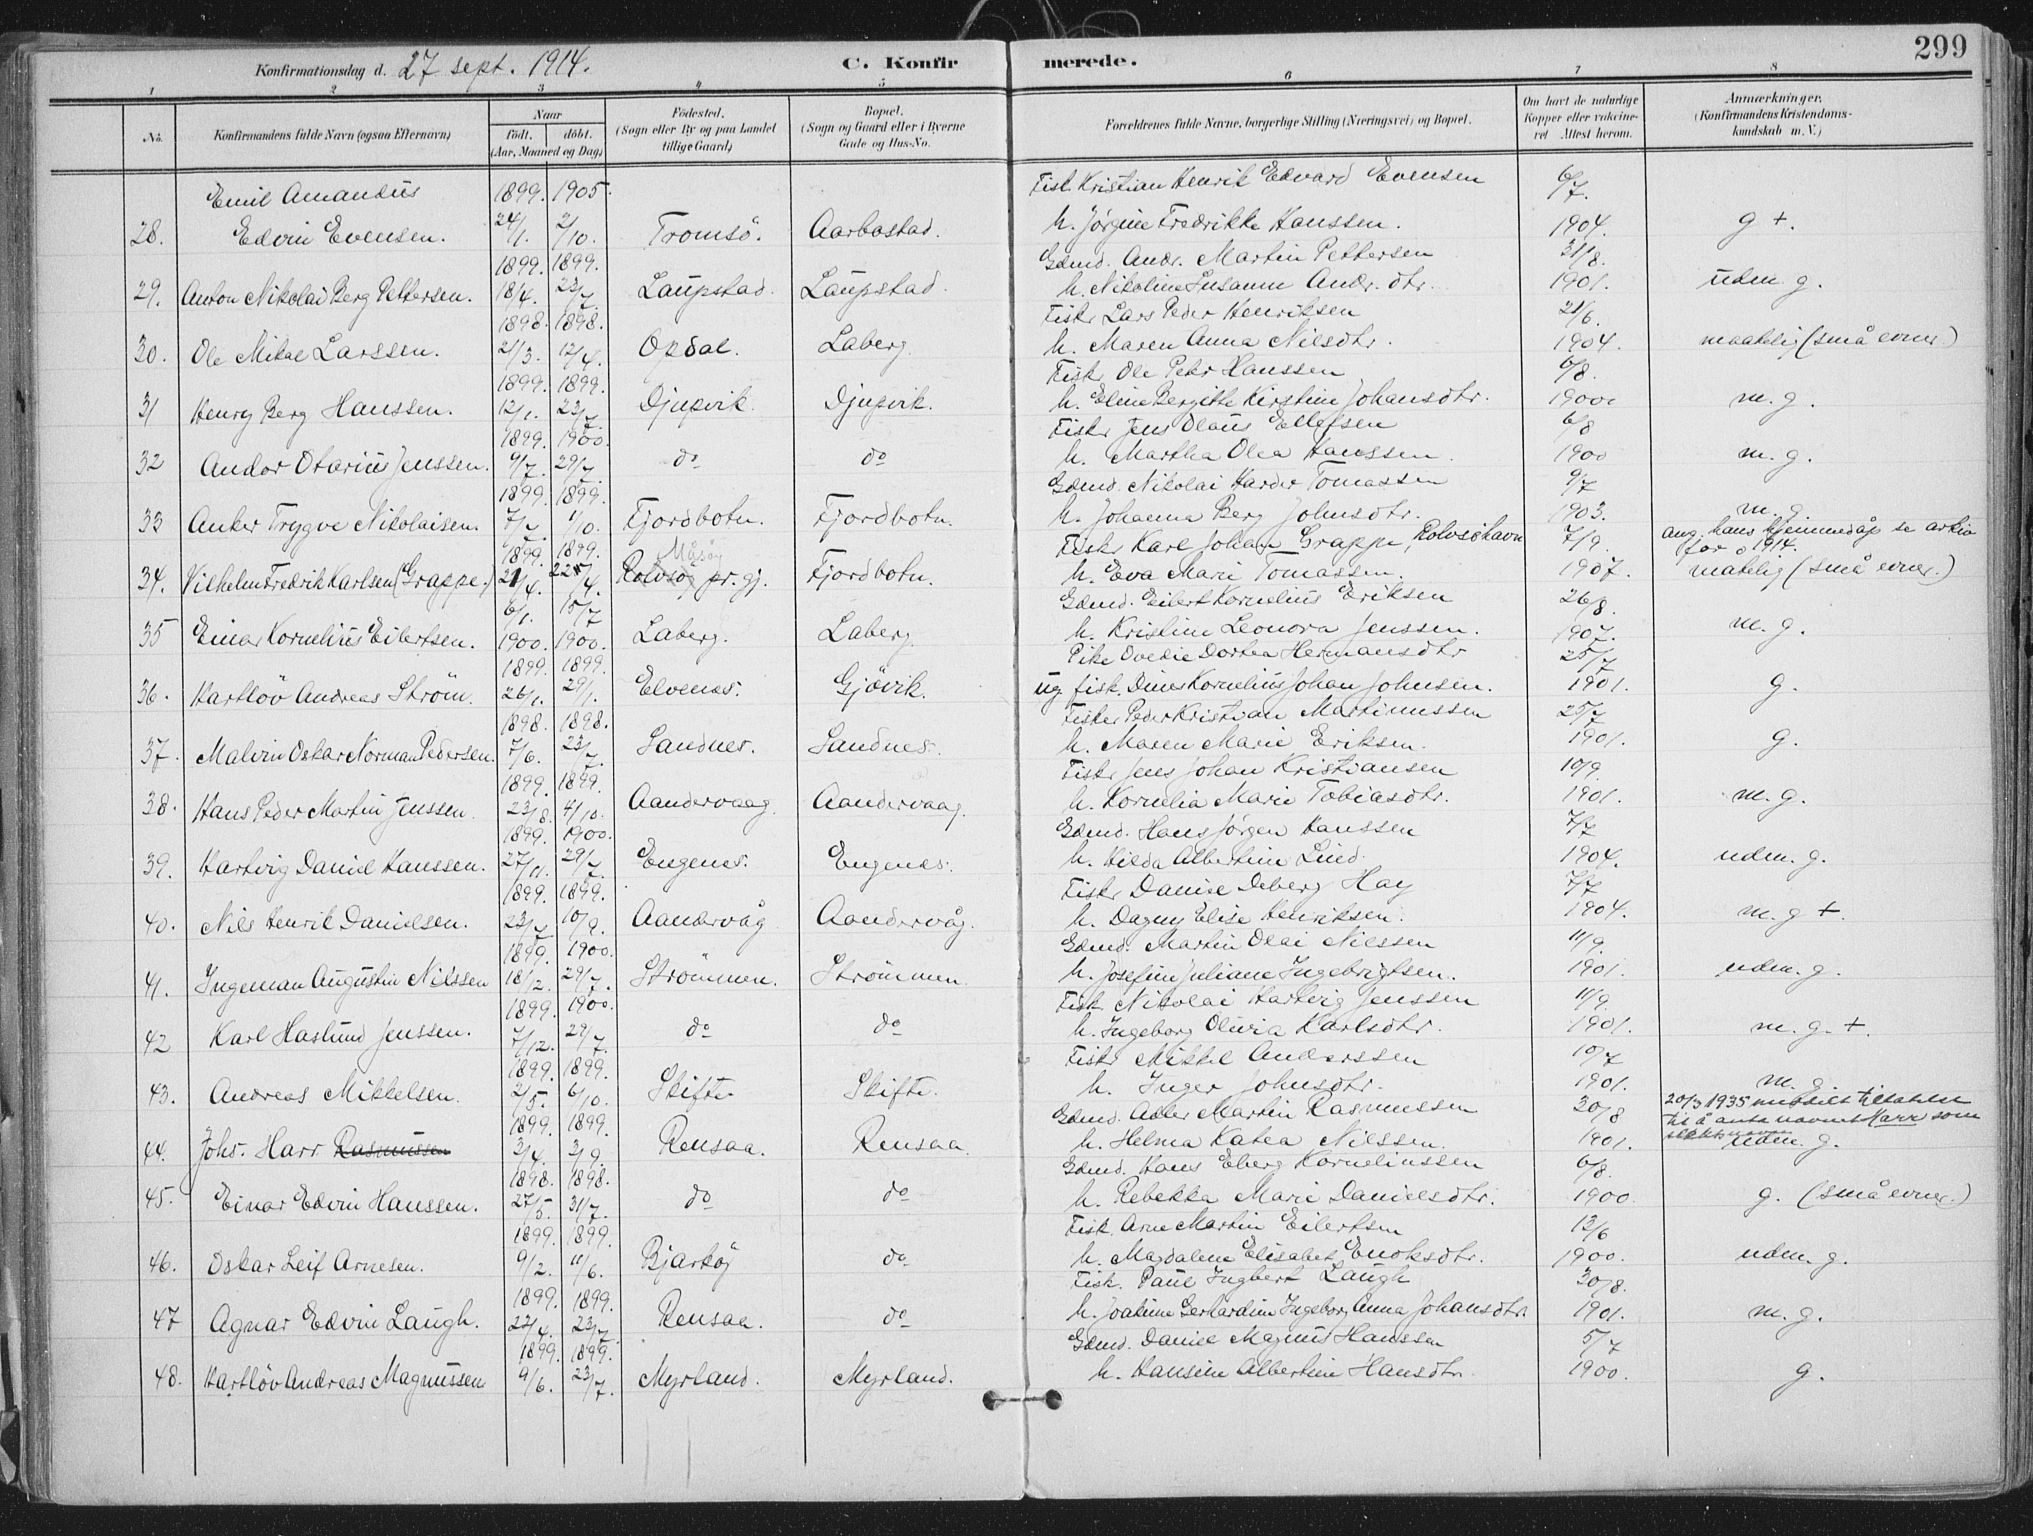 299
Konfirmationsdag d. 27 sept. 1914. C. Konfirmerede.
1 2 3 4 5 6 7 8
No. Konfirmandens fulde Navn (ogsaa Efternavn) Naar født. døbt. (Aar, Maaned og Dag) Fødested. (Sogn eller By og paa Landet tillige Gaard) Bopæl. (Sogn og Gaard eller i Byerne Gade og Hus-No. Forældrenes fulde Navne, borgerlige Stilling (Næringsvei) og Bopæl. Om havt de naturlige Kopper eller vakcineret Attest herom. Anmærkninger. (Konfirmandens Kristendomskundskab m. V.)
Emil Amandus 1899. 1905. Fisk. Kristian Henrik Edvard Evensen 6/7.
28. Edvin Evensen. 24/1. 2/10. Tromsö. Aarbostad. h. Jørgine Fredrikke Hanssen. 1904. g +.
1899. 1899. Gdmd. Andr. Martin Pettersen 31/8.
29. Anton Nikolai Berg Pettersen. 18/4. 23/7. Laupstad. Laupstad. h. Nikoline Susanne Andr. dtr. 1901. udm. g.
1898. 1898. Fisker Lars Peder Henriksen 21/6.
30. Ole Mikal Larssen. 21/3. 12/4. Opdal. Laberg. h. Maren Anna Nilsdtr. 1904. maatelig (små evner)
1899. 1899. Fisk. Ole Petr Hanssen 6/8.
31 Henry Berg Hanssen. 12/1. 23/7. Djupvik. Djupvik. h. Eline Bergitte Kirstine Johansdtr. 1900 m. g.
1899. 1900. Fisker Jens Olaus Ellefsen 6/8
32 Andor Otarius Jenssen. 9/7. 29/7. do do h. Martha Olea Hanssen. 1900 m. g.
1899. 1899. Gdmd. Nikolai Harder Tomassen 9/7
33 Anker Trygve Nikolaisen. 7/2. 1/10. Fjordbotn. Fjordbotn. h. Johanna Berg Johnsdtr. 1903. m. g.
1899. 1899. Måsöy Fisker Karl Johan Grappe, Rolvsöhavn 7/9. ang. hans hjemmedåp se arkiv for 1914.
34. Vilhelm Fredrik Karlsen (Grappe.) 21/4. 22/4. Rolvsöy pr. gj. Fjordbotn. h. Eva Marie Tomassen. 1907. matelig (små evner.)
6/1. 15/7 Gdmd. Eilert Kornelius Eriksen 26/8.
35 Einar Kornelius Eilertsen. 1900. 1900. Laberg. Laberg. h. Kristine Leonora Jenssen. 1907. m. g.
1899. 1899. Pike Ovedie Dortea Hermansdtr 25/7
36. Hartløv Andreas Strøm. 26/1. 29/1. Elvenes. Gjøvik. ug. fisk. Diner Kornelius Johan Johnsen. 1901. g.
1898. 1898. Fisker Peder Kristian Martinussen 25/7
37. Malvin Oskar Norman Pedersen. 7/6. 23/7. Sandnes. Sandnes. h. Maren Marie Eriksen. 1901. g.
1899. 1899. Fisker Jens Johan Kristiansen 10/9.
38. Hans Peder Martin Jenssen. 23/8. 4/10. Aandervaag. Aandervaag. h. Kornelia Marie Tobiasdtr. 1901. m. g.
1899. 1900. Gdmd. Hans Jørgen Hanssen 7/7
39. Hartvig Daniel Hanssen. 27/11. 29/7. Engenes. Engenes. h. Hilda Albertine Lind. 1904. udm. g.
1899. 1899. Fisker Daniel Deberg Hay 7/7
40. Nils Henrik Danielsen. 23/7. 10/9. Aandervåg Aandervåg. h. Dagny Elise Henriksen. 1904. m. g +.
1899. 1900. Gdmd. Martin Olai Nilssen 11/9.
41. Ingeman Augustin Nilssen 18/12. 29/7. Strömmen. Strömmen. h. Josefine Juliane Ingebrigtsen. 1901. udm. g.
1899. 1900. Fisk. Nikolai Hartvig Jenssen 11/9.
42 Karl Haslund Jenssen. 7/12. 29/7. do do h. Ingeborg Olivia Karlsdtr. 1901. m. g. +.
1899. 1899. Fisker Mikkel Andersen 10/7
43. Andreas Mikkelsen. 2/5. 6/10. Skifte. Skifte. h. Inger Johnsdtr. 1901. m. g.
1899. 1899. Gdmd. Adler Martin Rasmussen 30/8 20/3 1935 meddelt tillatelse til å anta navnet Harr som slektsnavn
44. Johs. Harr Rasmussen 3/4. 3/9. Rensaa. Rensaa. h. Helma Katea Nilssen. 1901. udm. g.
1898. 1898. Gdmd. Hans Eberg Korneliussen 6/8.
45. Einar Edvin Hanssen. 27/5. 31/7. do do h. Rebekka Marie Danielsdtr. 1900. g. (små evner.)
1899. 1899. Fisk. Arne Martin Eilertsen 13/6
46. Oskar Leif Arnesen. 9/2. 11/6. Bjarköy do h. Magdalene Elisabet Enoksdtr. 1900. udm. g.
1899. 1899. Fisk. Paul Ingbert Laugh 30/8.
47 Agnar Edvin Laugh. 22/4. 23/7. Rensaa. do h. Joakime Gerhardine Ingeborg Anna Johansdtr. 1901. m. g.
1899. 1899. Gdmd. Daniel Magnus Hanssen 5/7
48. Hartløv Andreas Magnussen 9/6. 23/7. Myrland. Myrland. h. Hansine Albertine Hansdtr. 1900. g.